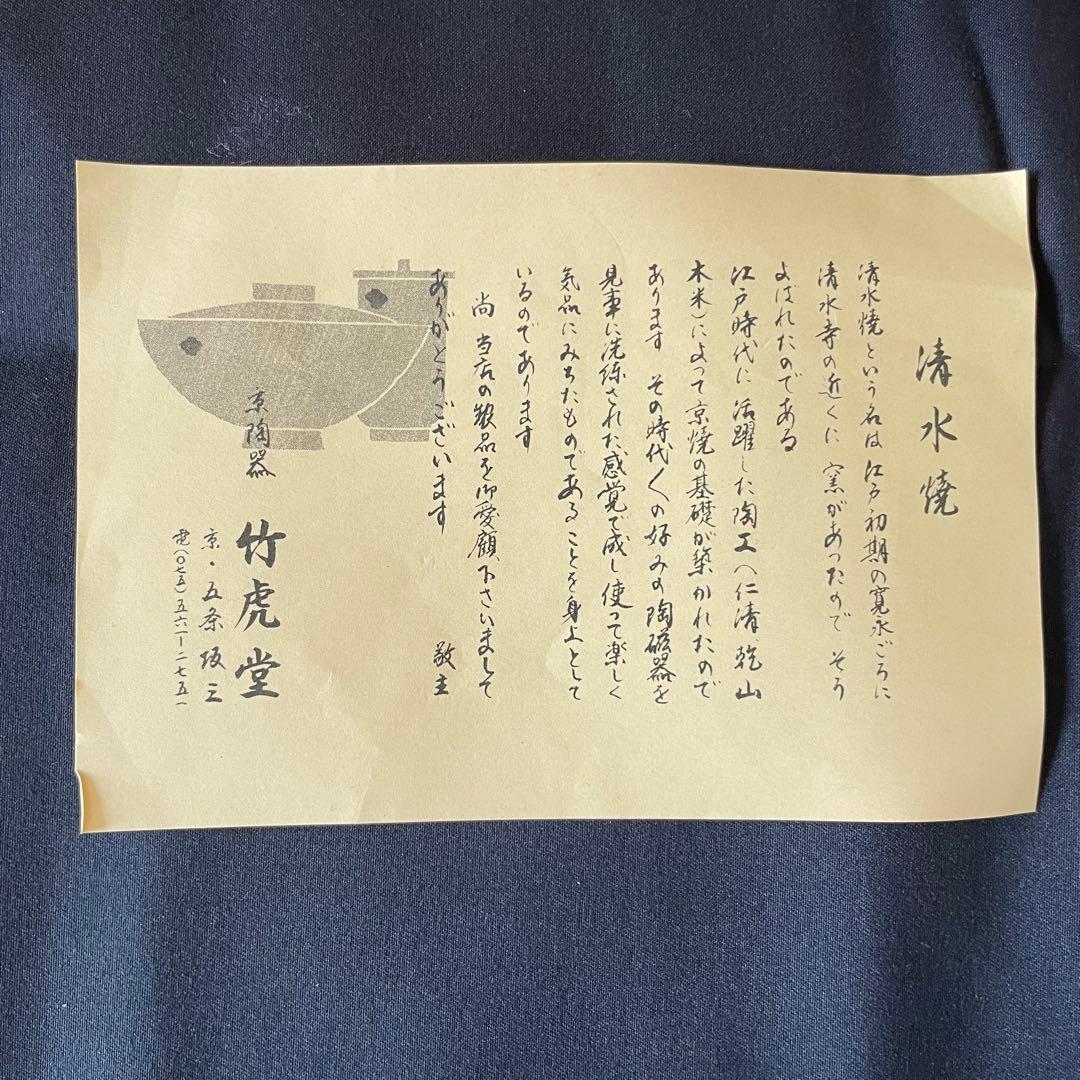 清水焼
清水焼という名は江戸初期の寛永ごろに
清水寺の近くに 窯があつたので そう
よばれたのである
江戸時代に活躍した陶工(仁清、乾山
木米)によって京焼の基礎が築かれたので
あります その時代〱の好みの陶磁器を
見事に洗練された感覚で成し使って楽しく
気品にみちたものであることを身上として
いるのであります
尚 当店の製品を御愛顧下さいまして
ありがとうございます
敬主
京陶器 竹虎堂
京・五条坂三
電(〇七五)五六一ー二七五一